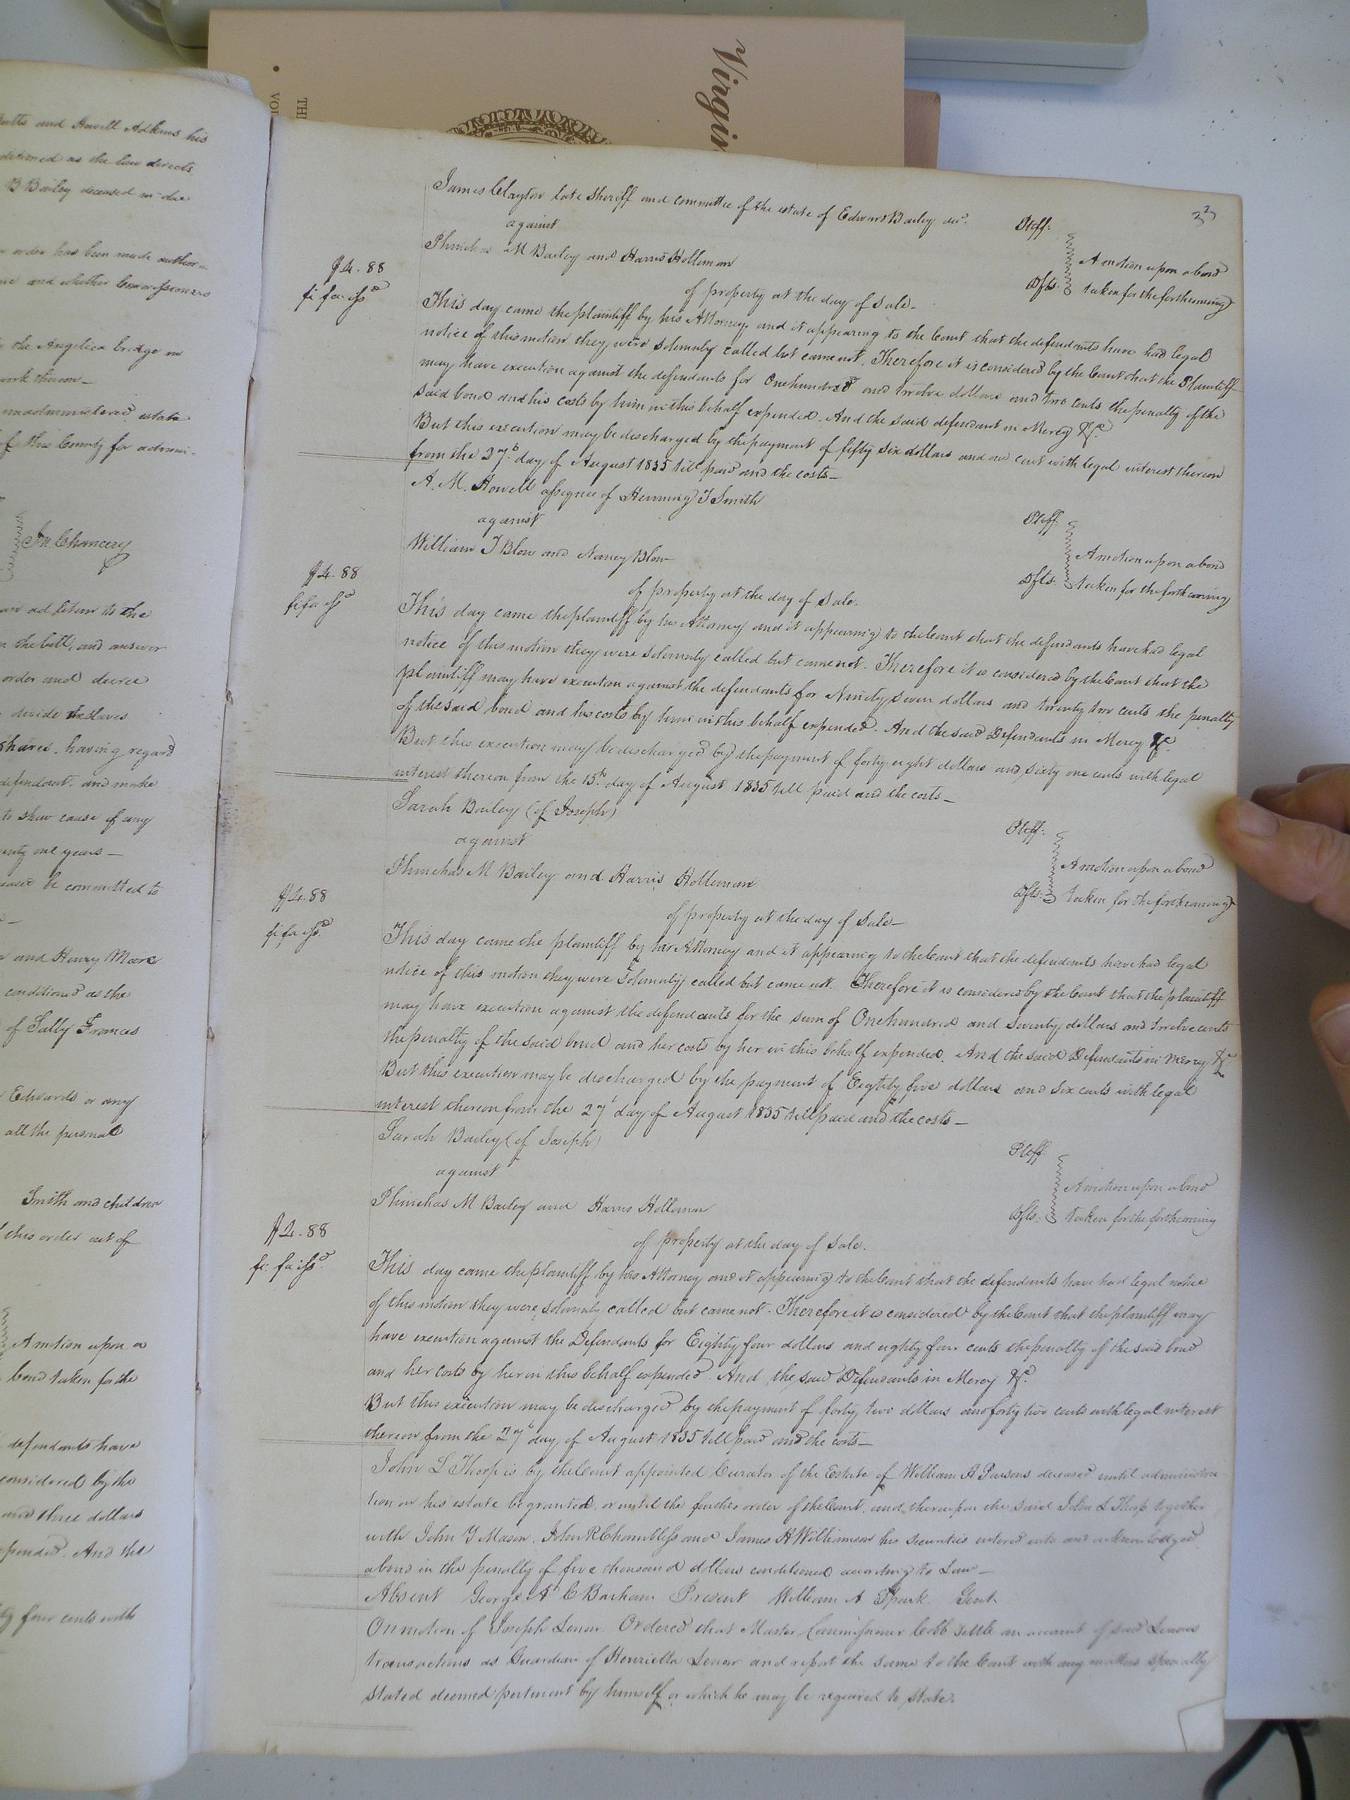 Virgin
THE
VOL
Butts and Howell Adkins his
ditioned as the law directs
B Bailey deceased in due
order has been made author-
and whether Commissioners
the Angelica bridge in
work thereon—
unadministered estate
of this County for admini-
In Chancery
an addition to the
the bill, and answer
order and decree
divide the slaves
shares, having regard
defendant, and make
to shew cause if any
twenty one years—
be committed to
and Henry Moore
conditioned as the
of Sally Frances
Edwards or any
all the personal
Smith and children
this order out of
A motion upon a
bond taken for the
defendants have
considered by the
and three dollars
expended. And the
ty four cents with
33
James Clayton late Sheriff and committee of the estate of Edwin Bailey dec.d Pltff.
against
Phinehas M Bailey and Harris Holleman Dfts.
A motion upon a bond
taken for the forthcoming
of property at the day of sale—
$4.88
fi fa issd
This day came the plaintiff by his Attorney and it appearing to the Court that the defendants have had legal
notice of this motion they were solemnly called but came not. Therefore it is considered by the Court that the Plaintiff
may have execution against the defendants for One hundred and twelve dollars and two cents the penalty of the
said bond and his costs by him in this behalf expended. And the said defendant in Mercy &c.
But this execution may be discharged by the payment of fifty six dollars and one cent with legal interest thereon
from the 27th day of August 1835 till paid and the costs—
A. M. Howell assignee of Henning T Smith Pltff.
against
William T Blow and Nancy Blow Dfts.
A motion upon a bond
taken for the forthcoming
of property at the day of sale.
$4.88
fi fa issd
This day came the plaintiff by his Attorney and it appearing to the Court that the defendants have had legal
notice of this motion they were solemnly called but came not. Therefore it is considered by the Court that the
plaintiff may have execution against the defendants for Ninety seven dollars and twenty two cents the penalty
of the said bond and his costs by him in this behalf expended. And the said Defendants in Mercy &c.
But this execution may be discharged by the payment of forty eight dollars and sixty one cents with legal
interest thereon from the 15th day of August 1835 till paid and the costs—
Sarah Bailey (of Joseph) Pltff.
against
Phinehas M Bailey and Harris Holleman Dfts.
A motion upon a bond
taken for the forthcoming
of property at the day of Sale—
$4.88
fi fa issd
This day came the plaintiff by her Attorney and it appearing to the Court that the defendants have had legal
notice of this motion they were solemnly called but came not. Therefore it is considered by the Court that the plaintiff
may have execution against the defendants for the sum of One hundred and seventy dollars and twelve cents
the penalty of the said bond and her costs by her in this behalf expended. And the said Defendants in Mercy &c
But this execution may be discharged by the payment of Eighty five dollars and six cents with legal
interest thereon from the 27th day of August 1835 till paid and the costs—
Sarah Bailey (of Joseph) Pltff
against
Phinehas M Bailey and Harris Holleman Dfts.
A motion upon a bond
taken for the forthcoming
of property at the day of sale.
$4.88
fi. fa issd
This day came the plaintiff by his Attorney and it appearing to the Court that the defendants have had legal notice
of this motion they were solemnly called but came not. Therefore it is considered by the Court that the plaintiff may
have execution against the Defendants for Eighty four dollars and eighty four cents the penalty of the said bond
and her costs by her in this behalf expended. And the said Defendants in Mercy &c.
But this execution may be discharged by the payment of forty two dollars and forty two cents with legal interest
thereon from the 27th day of August 1835 till paid and the costs—
John L Thorp is by the Court appointed Curator of the Estate of William A Parsons deceased until administra-
tion on his estate be granted, or until the further order of the Court, and thereupon the said John L Thorp together
with John Y Mason, John R Chambliss and James H Wilkinson his securities entered into and acknowledged
a bond in the penalty of five thousand dollars conditioned according to Law—
Absent George A C Barham Present William A Spark Gent.
On motion of Joseph Lenow Ordered that Master Commissioner Cobb settle an account of said Lenows
transactions as Guardian of Henrietta Lenow and report the same to the Court with any matters specially
stated deemed pertinent by himself or which he may be required to state.